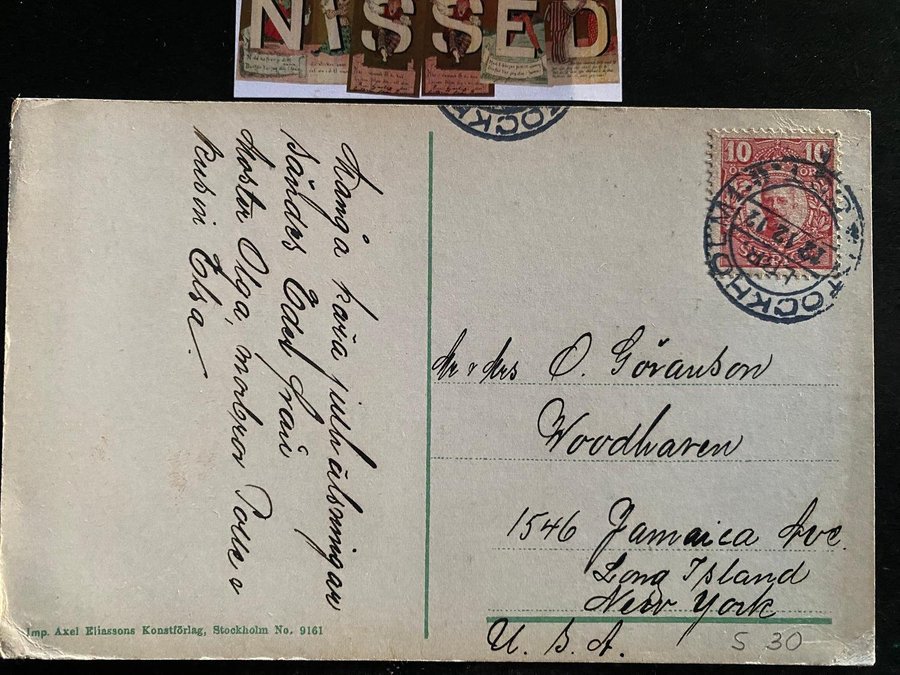 NISSED
Många kära julhälsningar
sändes Eder från
Moster Olga, morbror Polle &
Kusin Elsa.
STOCKHOLM
10 10
STOCKHOLM
12.12.12
Mr & Mrs O. Göranson
Woodhaven
1546 Jamaica Ave.
Long Island
New York
U. S. A.
S 30
Imp. Axel Eliassons Konstförlag, Stockholm No. 9161